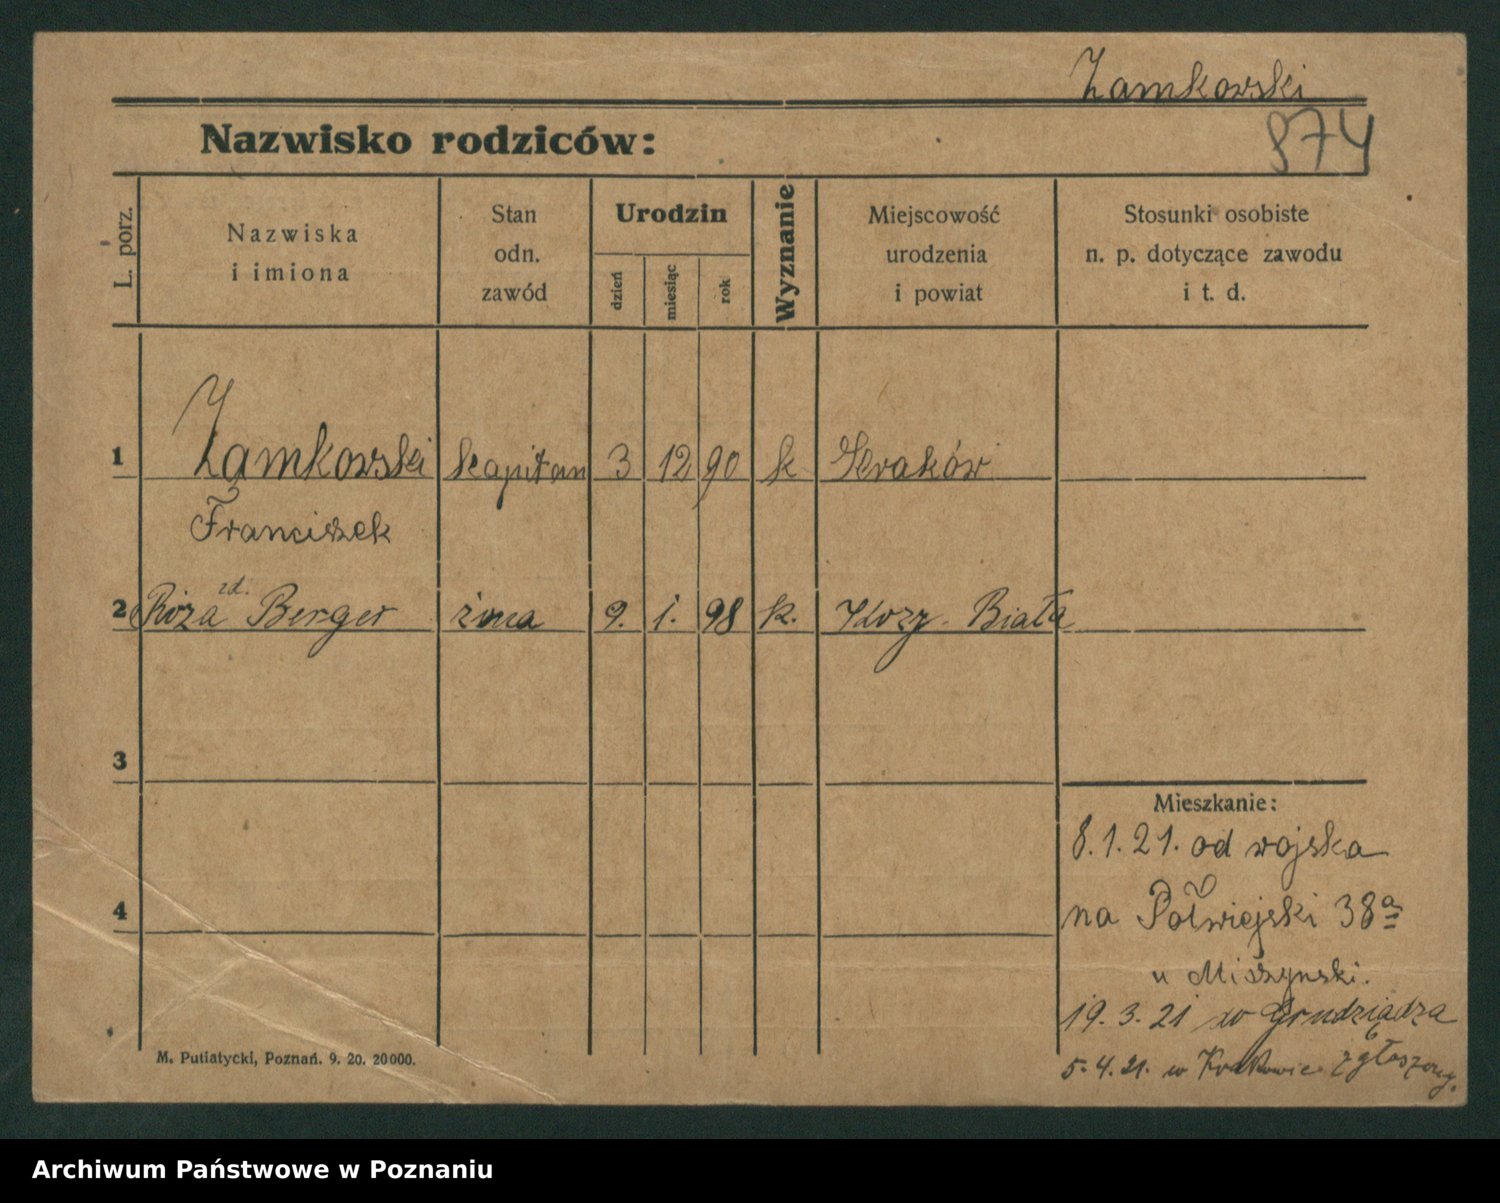 Zamkowski
874
Nazwisko rodziców:
L. porz.
Nazwiska
i imiona
Stan
odn.
zawód
Urodzin
dzień
miesiąc
rok
Wyznanie
Miejscowość
urodzenia
i powiat
Stosunki osobiste
n. p. dotyczące zawodu
i t. d.
1 Zamkowski kapitan 3 12 90 k Kraków
Franciszek
zd.
2 Róża Berger żona 9. 1. 98 k. Kozy. Biała
3
Mieszkanie:
8.1.21. od wojska
4
na Półwiejski 38a
u Miszynski.
19.3.21 do Grudziądza
5.4.21. w Krakowie zgłoszony.
M. Putiatycki, Poznań. 9. 20. 20000.
Archiwum Państwowe w Poznaniu